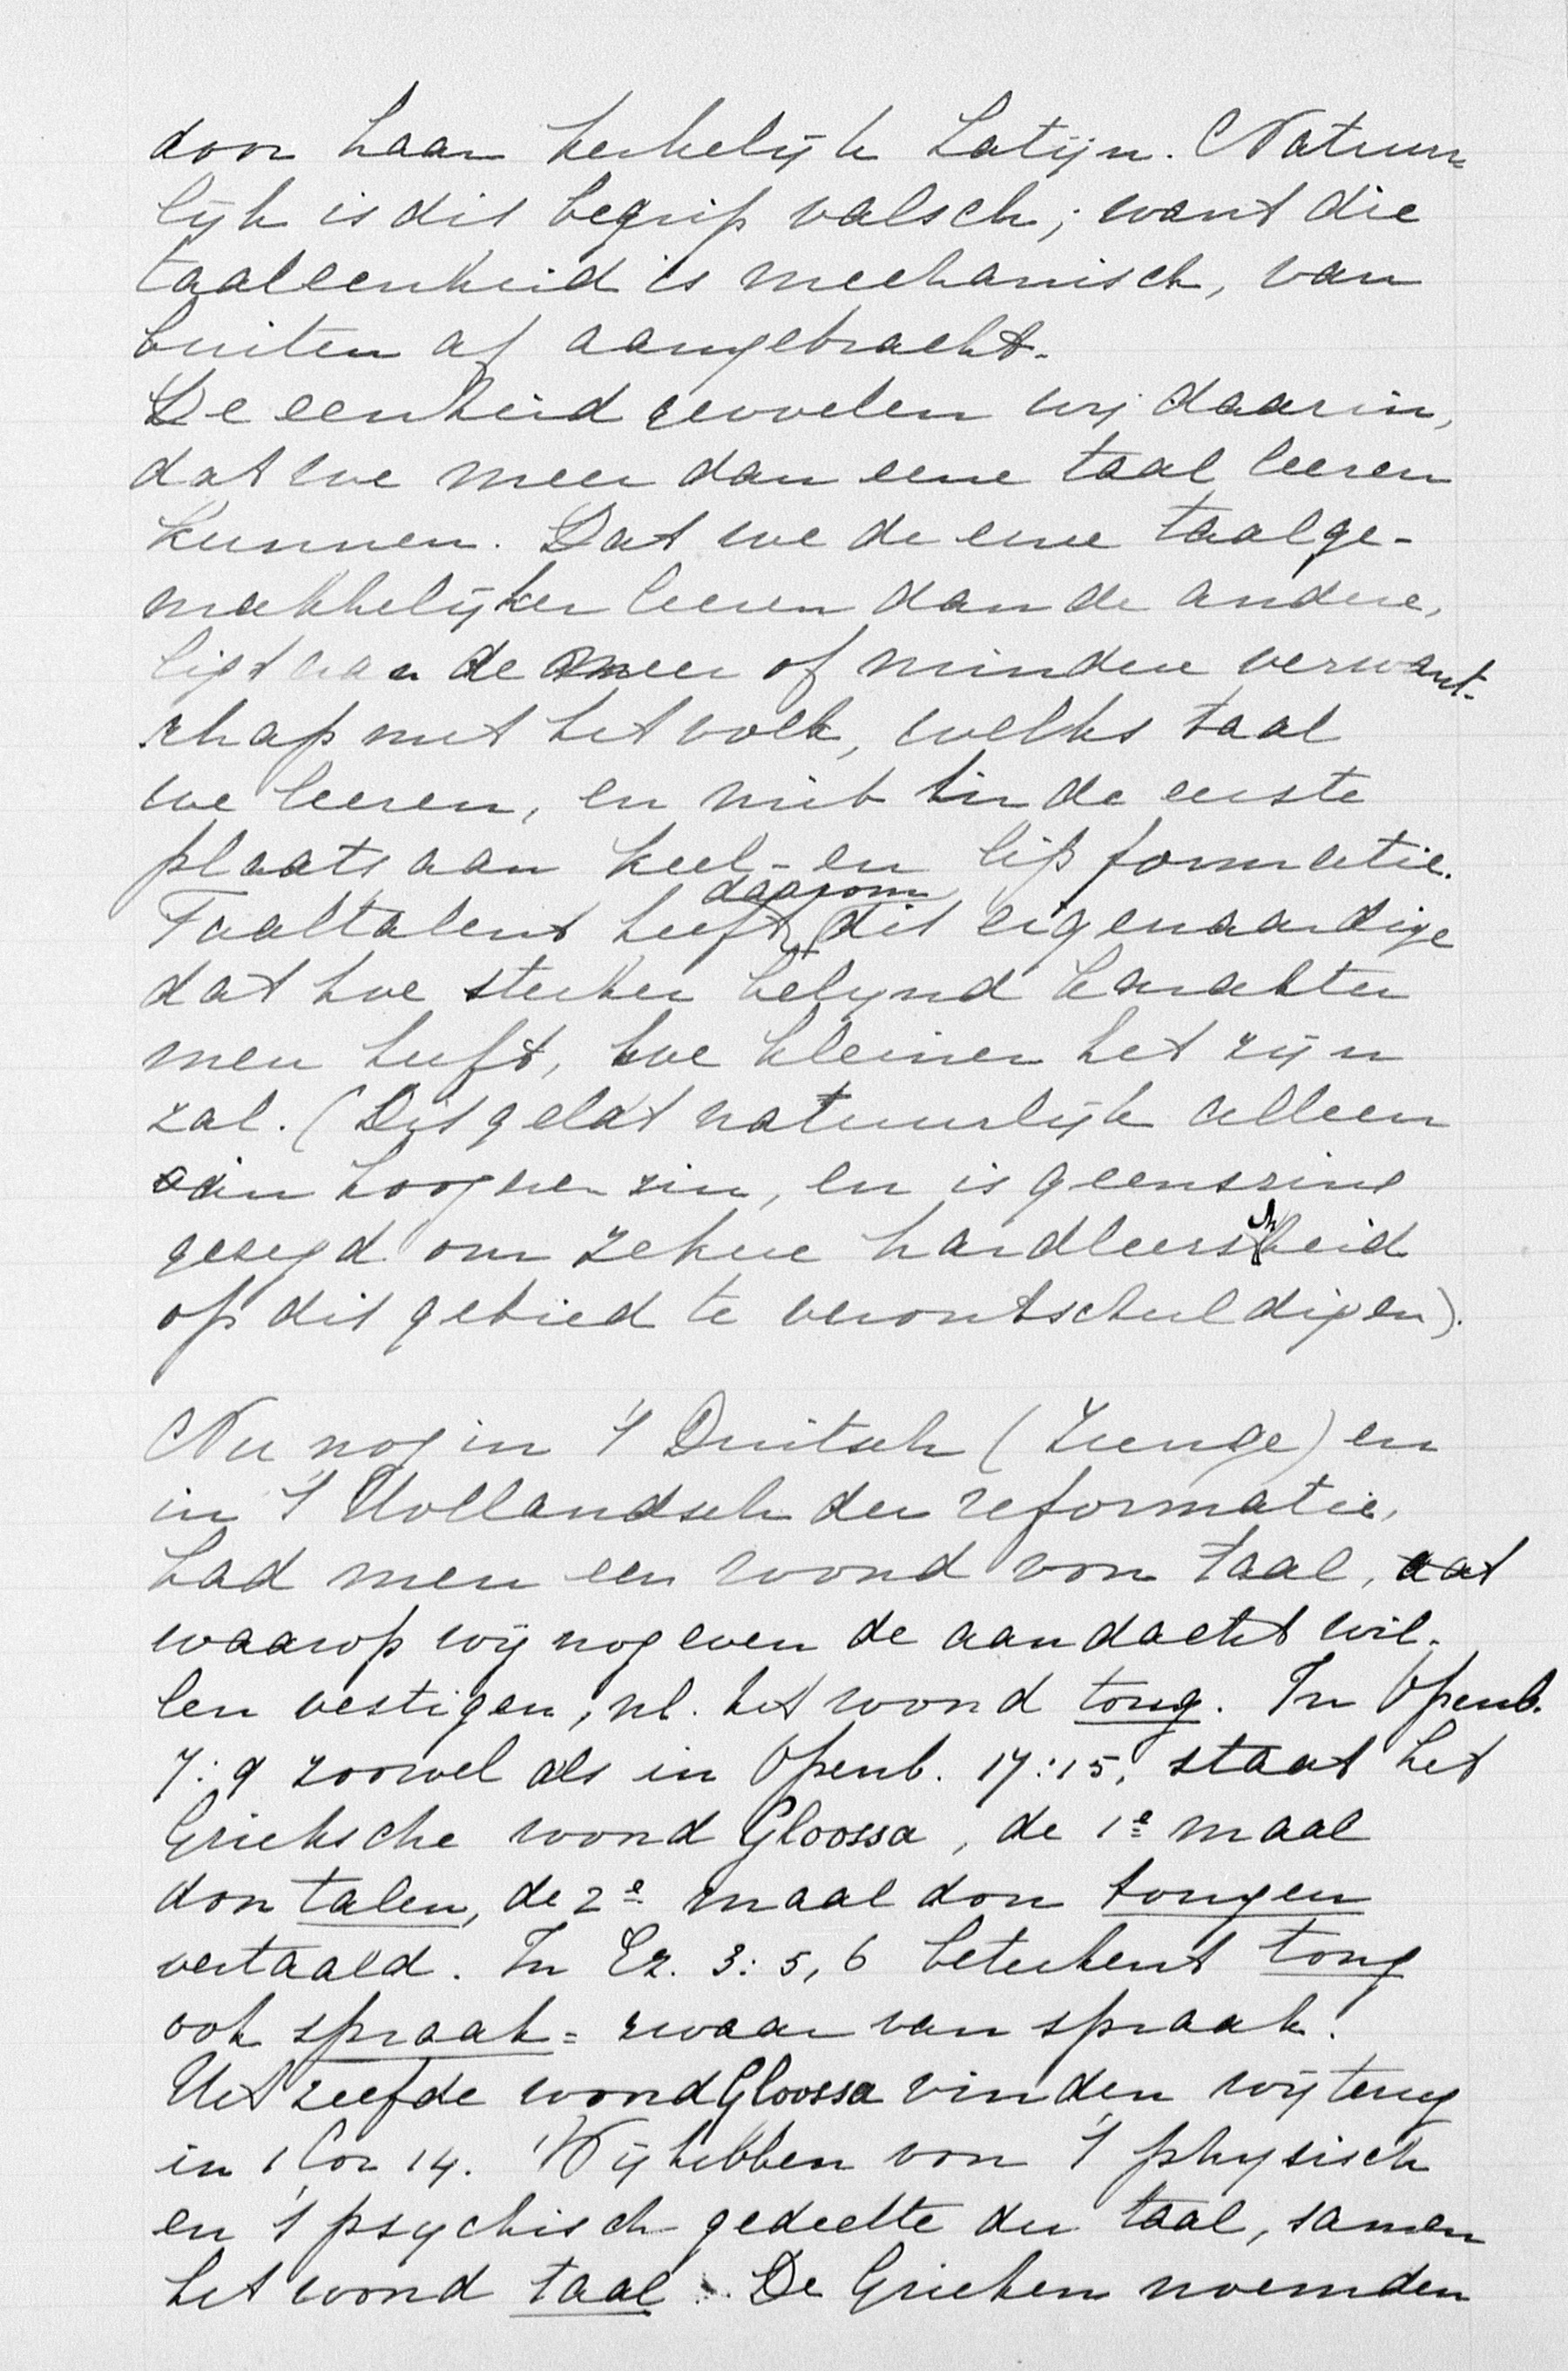 door haar kerkelijk Latijn. Natuur=
lijk is dit begrip valsch; want die
taaleenheid is mechanisch, van
buiten af aangebracht.
De eenheid gevoelen wij daarin,
dat we meer dan eene taal leeren
kunnen. Dat we de eene taal ge-
makkelijker leeren dan de andere,
ligt aan de meer of mindere verwant-
schap met het volk, welks taal
we leeren, en niet in de eerste
plaats aan keel- en lip formatie.
Taaltalent heeft daarom dit eigenaardige
dat hoe sterker belijnd karakter
men heeft, hoe kleiner het zijn
zal. (Dit geldt natuurlijk alleen
in hoogeren zin, en is geenszins
gezegd om zekere hardleerschheid
op dit gebied te verontschuldigen).
Nu nog in 't Duitsch (Zunge) en
in 't Hollandsch der reformatie,
had men een woord voor taal, dat
waarop wij nog even de aandacht wil-
len vestigen, nl. het woord tong. In Openb.
7:9 zoowel als in Openb. 17:15, staat het
Grieksche woord Gloossa, de 1e maal
door talen, de 2e maal door tongen
vertaald. In Ez. 3:5,6 beteekent tong
ook spraak = zwaar van spraak.
Het zelfde woord Gloossa vinden wij terug
in 1 Cor 14. Wij hebben voor 't physisch
en 't psychisch gedeelte der taal, samen
het woord taal. De Grieken noemden